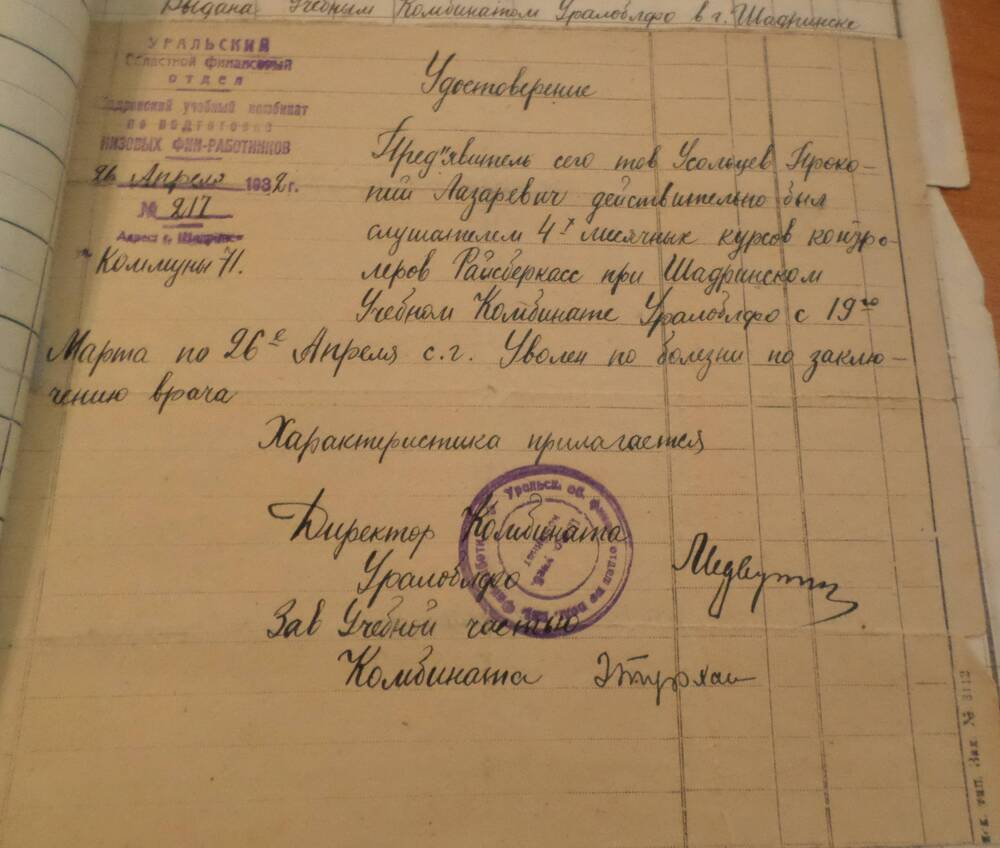 Выдана Учебным Комбинатом Уралоблфо в г. Шадринске
УРАЛЬСКИЙ
Областной финансовый
отдел
Шадринский учебный комбинат
по подготовке
НИЗОВЫХ ФИН-РАБОТНИКОВ
26 Апреля 1932 г.
№ 217
Адрес г. Шадринск
Коммуны 71.
Удостоверение
Пред"явитель сего тов Усольцев Проко-
пий Лазаревич действительно был
слушателем 4х месячных курсов контро-
леров Райсберкасс при Шадринском
Учебном Комбинате Уралоблфо с 19го
Марта по 26е Апреля с.г. Уволен по болезни по заклю-
чению врача
Характеристика прилагается
Директор Комбината
Уралоблфо
Зав Учебной частью
Комбината
Уральск. об. фин. отдел по под.
тип. Зак. № 3112